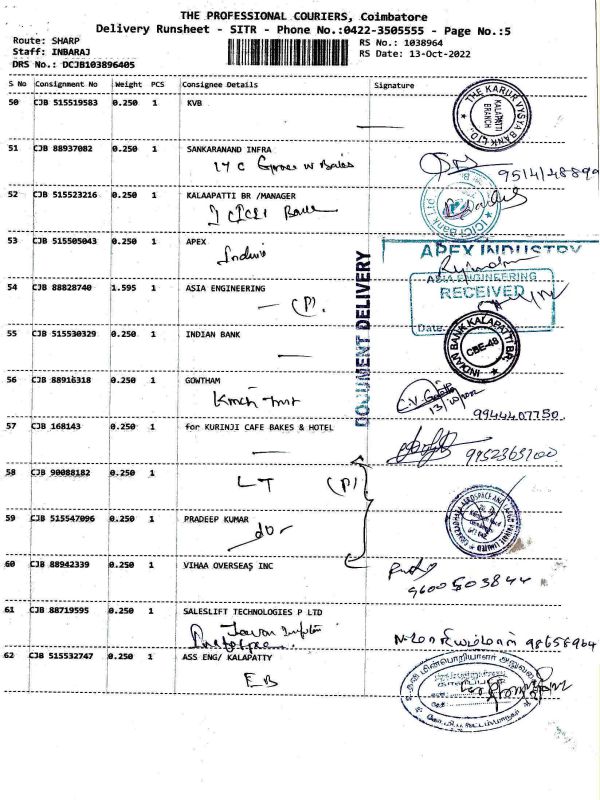 THE PROFESSIONAL COURIERS, Coimbatore
Delivery Runsheet - SITR - Phone No.:0422-3505555 - Page No.:5
Route: SHARP
RS No.: 1038964
Staff: INBARAJ
RS Date: 13-Oct-2022
DRS No.: DCJB103896405
S No Consignment No Weight PCS Consignee Details Signature
50 CJB 515519583 0.250 1 KVB
THE KARUR VYSYA BANK LTD.
KALAPATTI BRANCH
51 CJB 88937082 0.250 1 SANKARANAND INFRA
52 CJB 515523216 0.250 1 KALAAPATTI BR /MANAGER
ICICI Bank
ICICI Bank
53 CJB 515505043 0.250 1 APEX
APEX INDUSTRY
DOCUMENT DELIVERY
54 CJB 88828740 1.595 1 ASIA ENGINEERING
(P).
ASIA ENGINEERING
RECEIVED
Date
55 CJB 515530329 0.250 1 INDIAN BANK
INDIAN BANK KALAPATTI BR.
CBE-48
56 CJB 88916318 0.250 1 GOWTHAM
13/10/2022
9944407750
57 CJB 168143 0.250 1 for KURINJI CAFE BAKES & HOTEL
58 CJB 90088182 0.250 1
LT (P)
59 CJB 515547096 0.250 1 PRADEEP KUMAR
60 CJB 88942339 0.250 1 VIHAA OVERSEAS INC
9600803844
61 CJB 88719595 0.250 1 SALESLIFT TECHNOLOGIES P LTD
62 CJB 515532747 0.250 1 ASS ENG/ KALAPATTY
EB